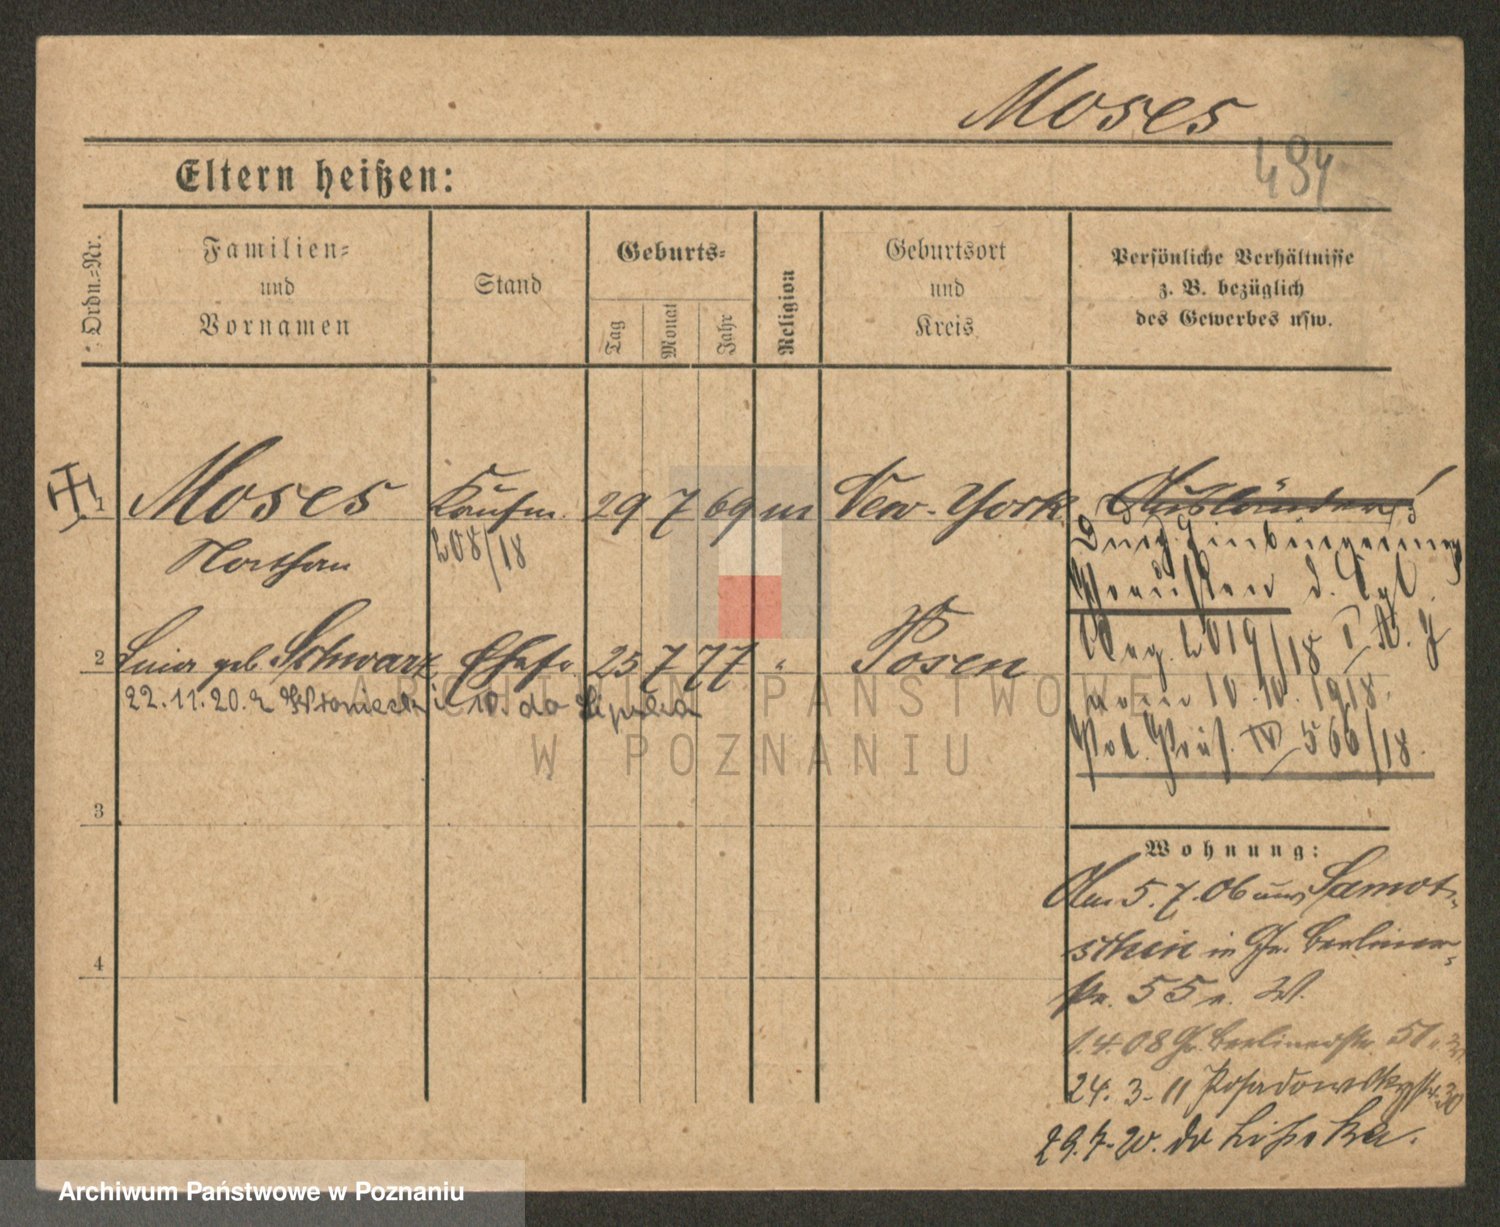 Moses
494
Eltern heißen:
Ordn.-Nr.
Familien-
und
Vornamen
Stand
Geburts-
Tag
Monat
Jahr
Religion
Geburtsort
und
Kreis
Persönliche Verhältnisse
z. B. bezüglich
des Gewerbes usw.
1 Moses Kaufm. 29 7 69 m New-York Ausländer!
Nathan 208/18
Durch Einbürgerung
Preußen d. Rgl.
2 geb. Schwarz Ehefr. 25 7 77 " Posen
Reg. 2019/18 I
22.11.20. z Wroniecki 10. do Lipska
vom 10.10.1918.
Pol. Präs. IV 566/18.
3
Wohnung:
Am 5.7.06 aus Samot-
schin in Gr. Berliner-
str. 55 n. W.
4
1.4.08 Gr. Berlinerstr. 51
24.3.11 Posadowskystr. 30
29.7.20. do Lipska.
ARCHIWUM PAŃSTWOWE
W POZNANIU
Archiwum Państwowe w Poznaniu